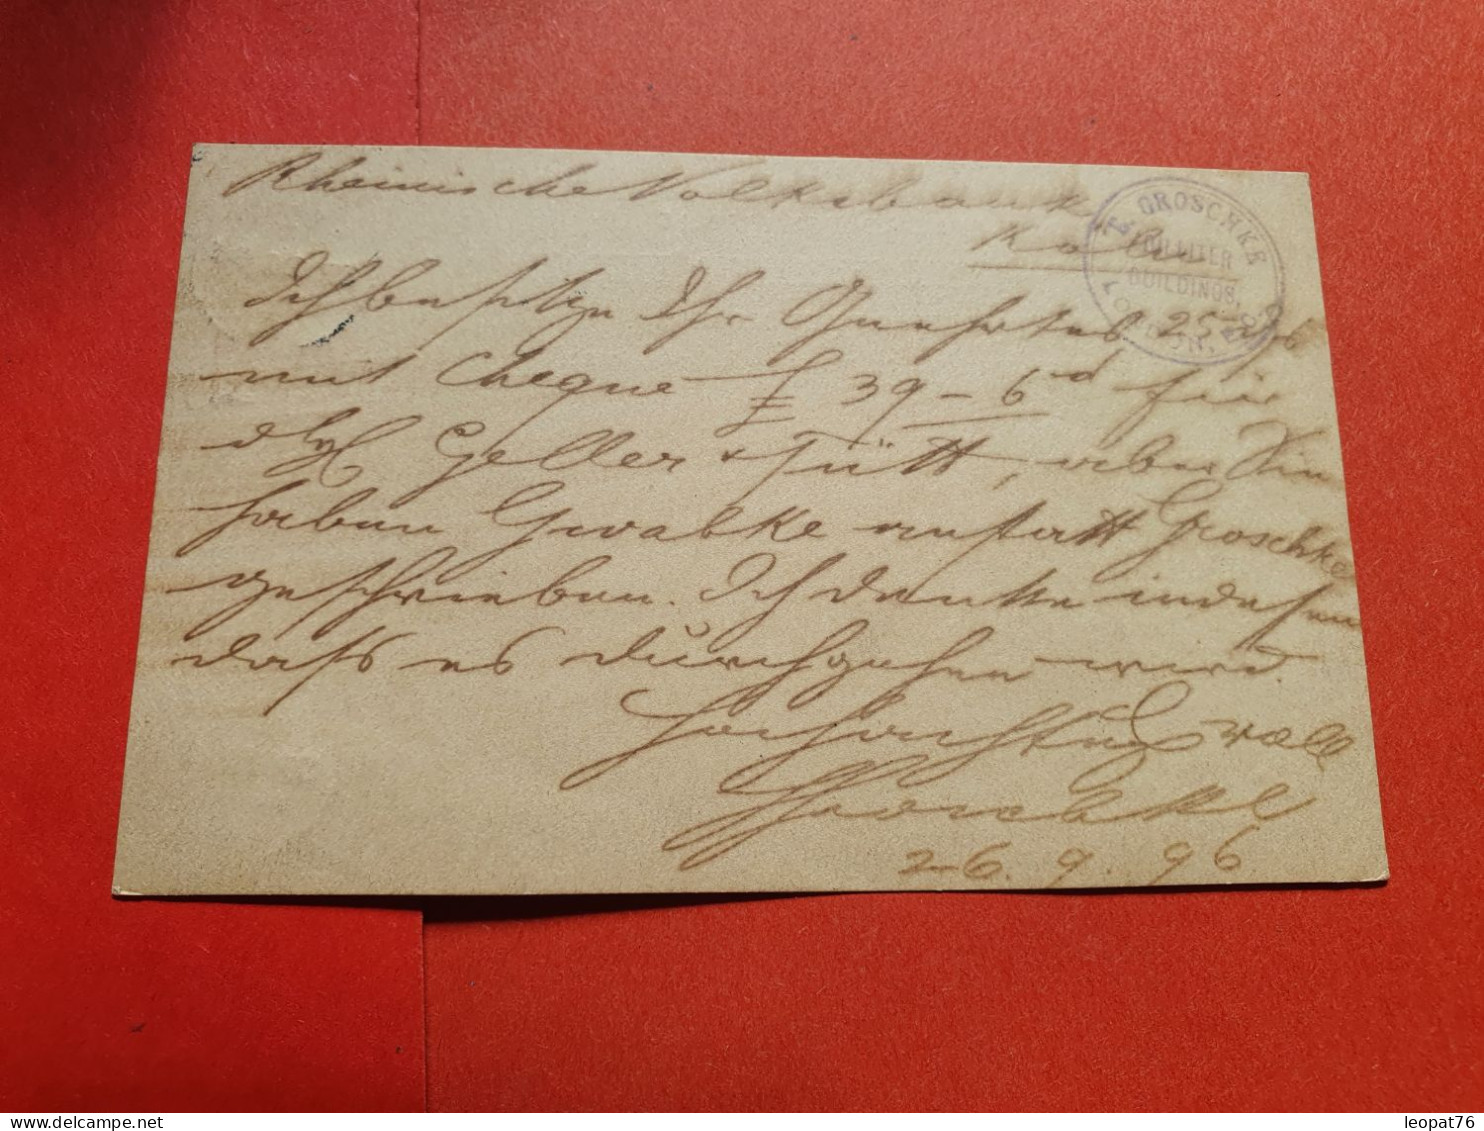 Rheinische Volksbank
Köln
B. GROSCHKE
BUILDINGS,
LONDON, E.C.
Ich besitze Ihr Geehrtes 25 ds
mit Cheque £ 39 - 6d für
Geller & Tütt, aber Sie
haben Gwalke anstatt Groschke
geschrieben. Ich denke indessen
dass es durchgehen wird.
Hochachtungsvoll
Groschke
26. 9. 96
leopat76